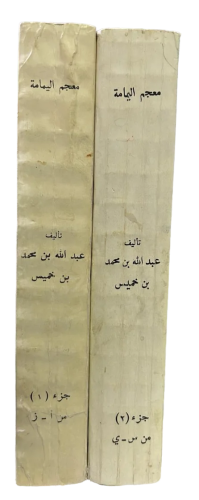 معجم اليمامة
تأليف
عبد الله بن محمد
بن خميس
جزء (١)
من أ - ز
معجم اليمامة
تأليف
عبد الله بن محمد
بن خميس
جزء (٢)
من س - ي